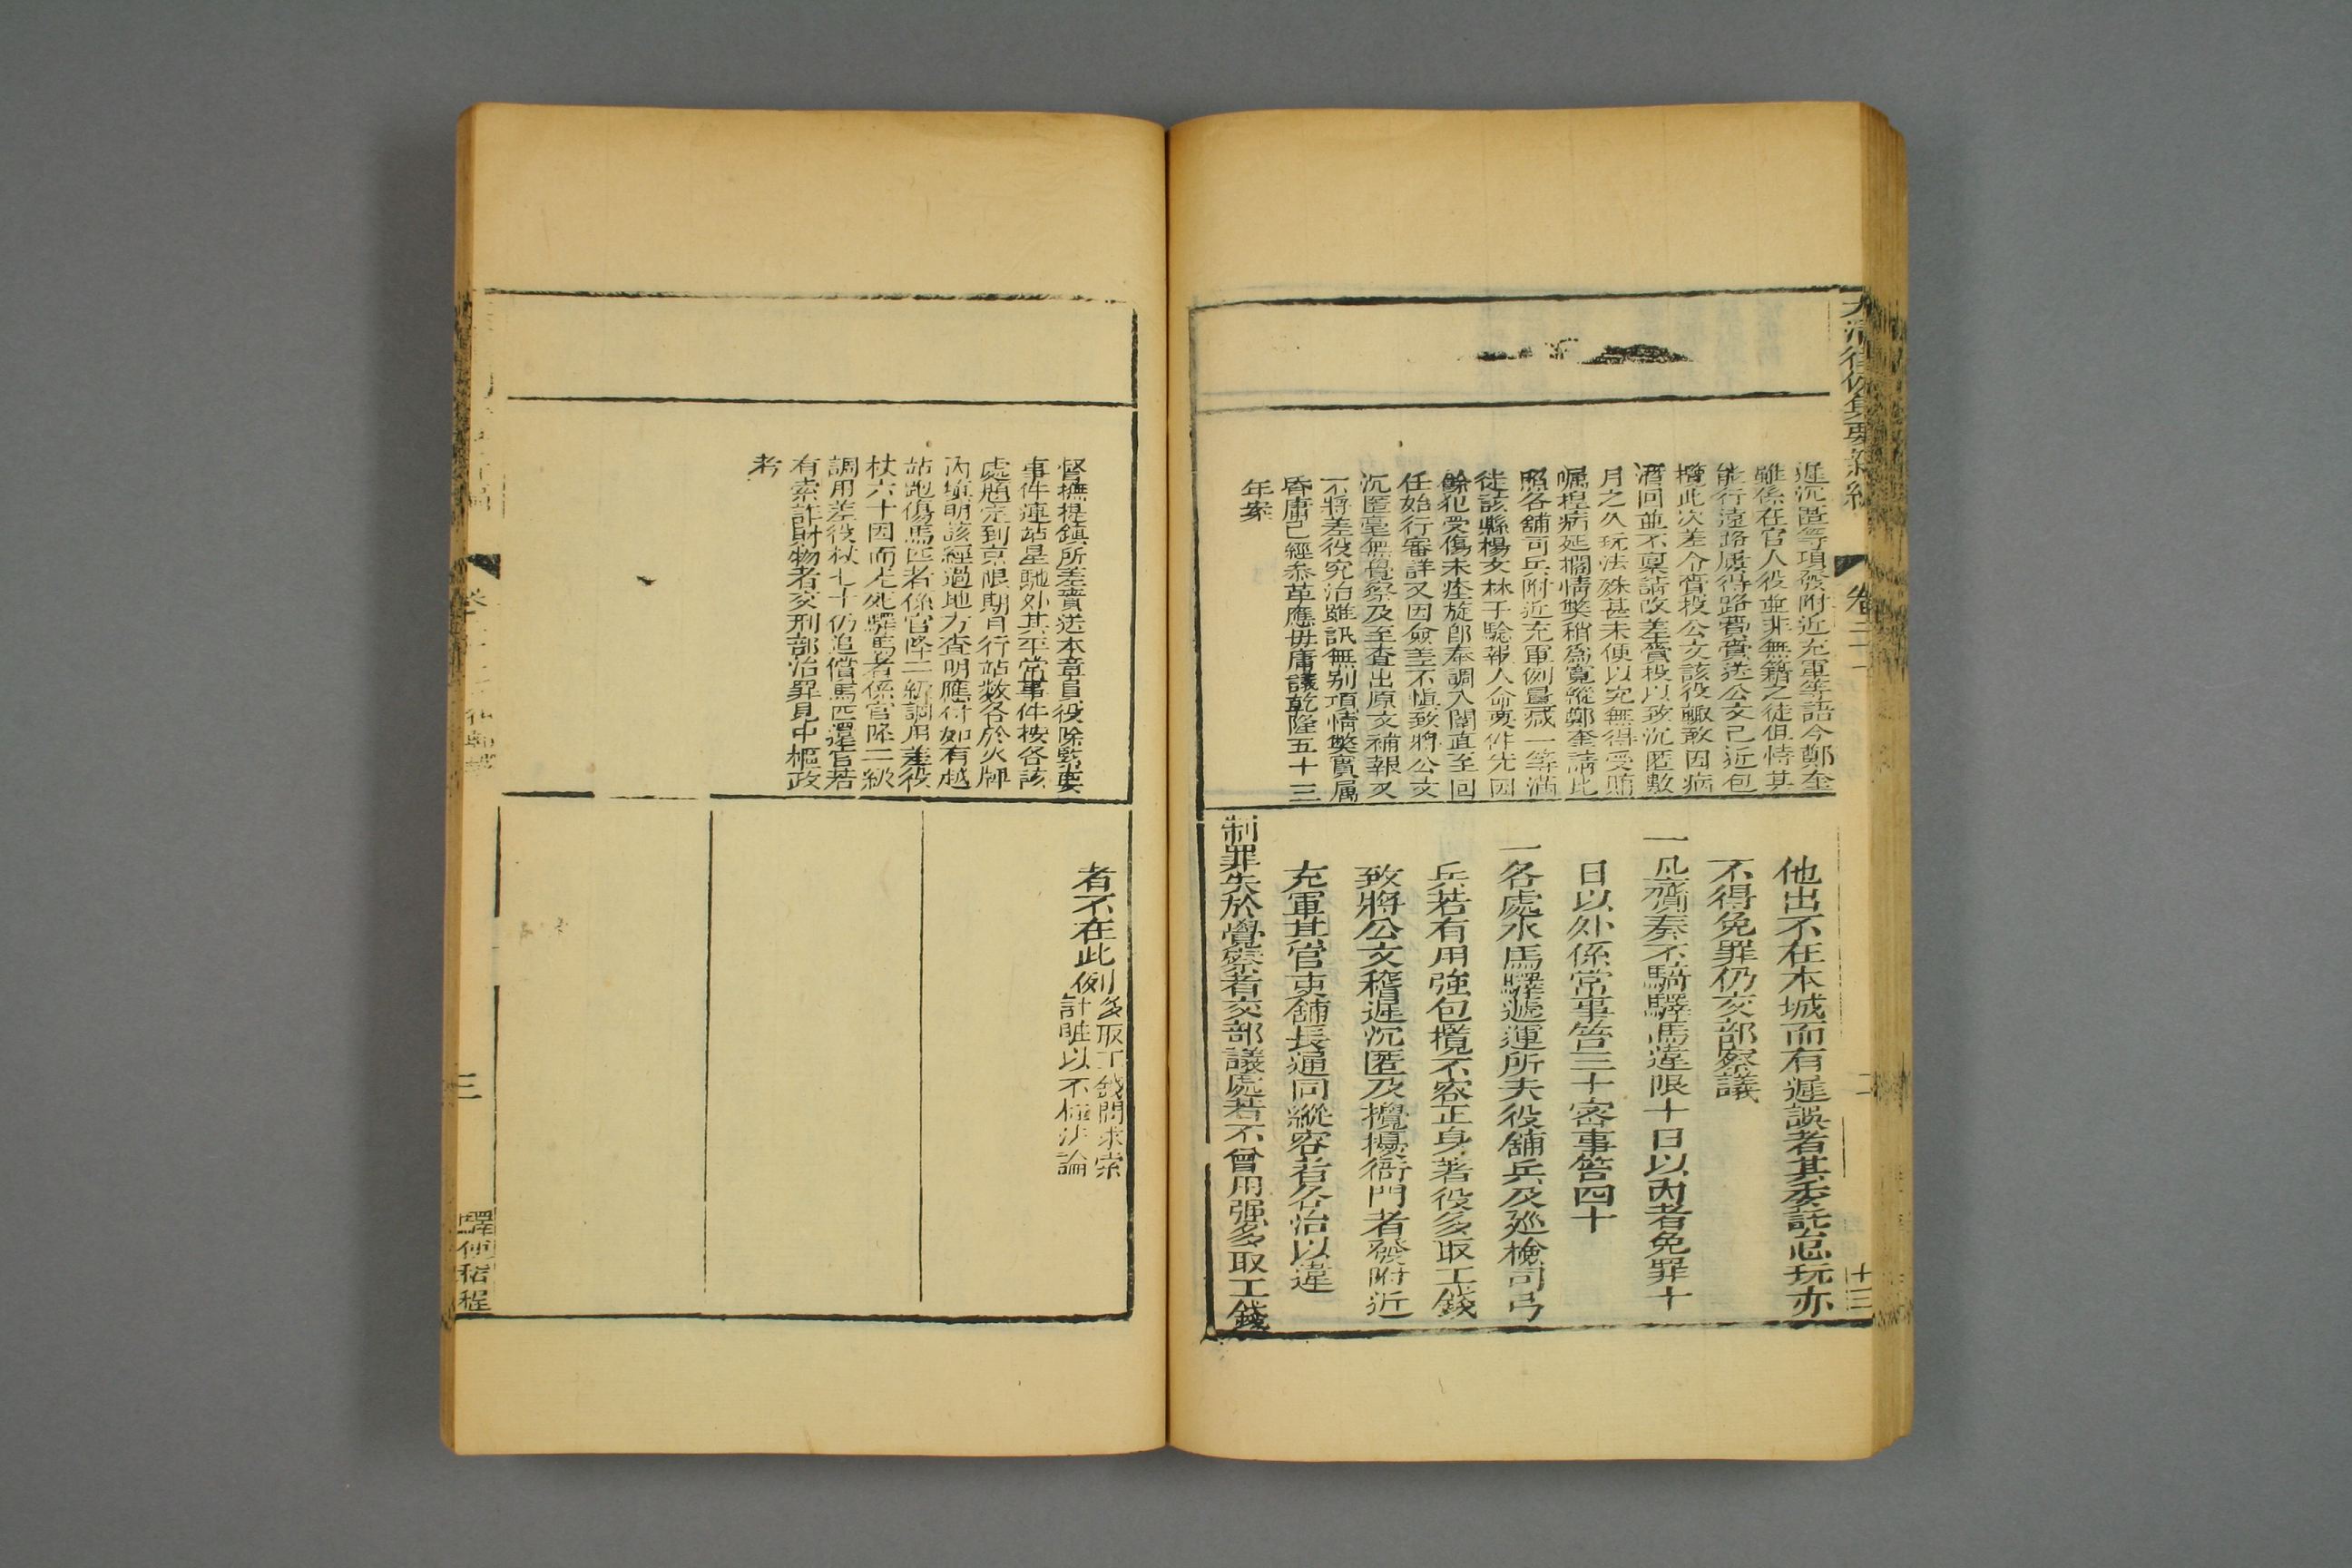 遲沉匿等項發附近充軍等語今鄭奎
雖係在官人役並非無籍之徒但恃其
能行遠路屢得路費賫送公文已近包
攬此次差令賫投公文該役輙敢因病
潛回並不稟請改差賫投以致沉匿數
月之久玩法殊甚未便以究無得受賄
囑捏病延擱情弊稍為寬縱鄭奎請比
照各舖司兵附近充軍例量減一等滿
徒該縣楊文林于騐報人命要件先因
餘犯受傷未痊旋卽奉調入闈直至回
任始行審詳又因僉差不慎致將公文
沉匿毫無覺察及至查出原文補報又
不將差役究治雖訊無别項情弊實属
昏庸已經叅革應毋庸議乾隆五十三
年案
他出不在本城而有遲誤者其委託怠玩亦
不得免罪仍交部察議
一凡賫奏不騎驛馬違限十日以内者免罪十
日以外係常事笞三十密事笞四十
一各處水馬驛遞運所夫役舖兵及廵檢司弓
兵若有用強包攬不容正身著役多取工錢
致將公文稽遲沉匿及攪擾衙門者發附近
充軍其官吏舖長通同縱容者各治以違
制罪失於覺察者交部議處若不曾用强多取工錢
卷二十一
十三
督撫提鎮所差賫送本章員役除緊要
事件連站星馳外其平常事件按各該
處題定到京限期日行站數各於火牌
内填明該經過地方查明應付如有越
站跑傷馬匹者係官降一級調用差役
杖六十因而走死驛馬者係官降二級
調用差役杖七十仍追償馬匹還官若
有索詐財物者交刑部治罪見中樞政
考
者不在此例多取工錢問求索
計賍以不枉法論
三
驛使稽程